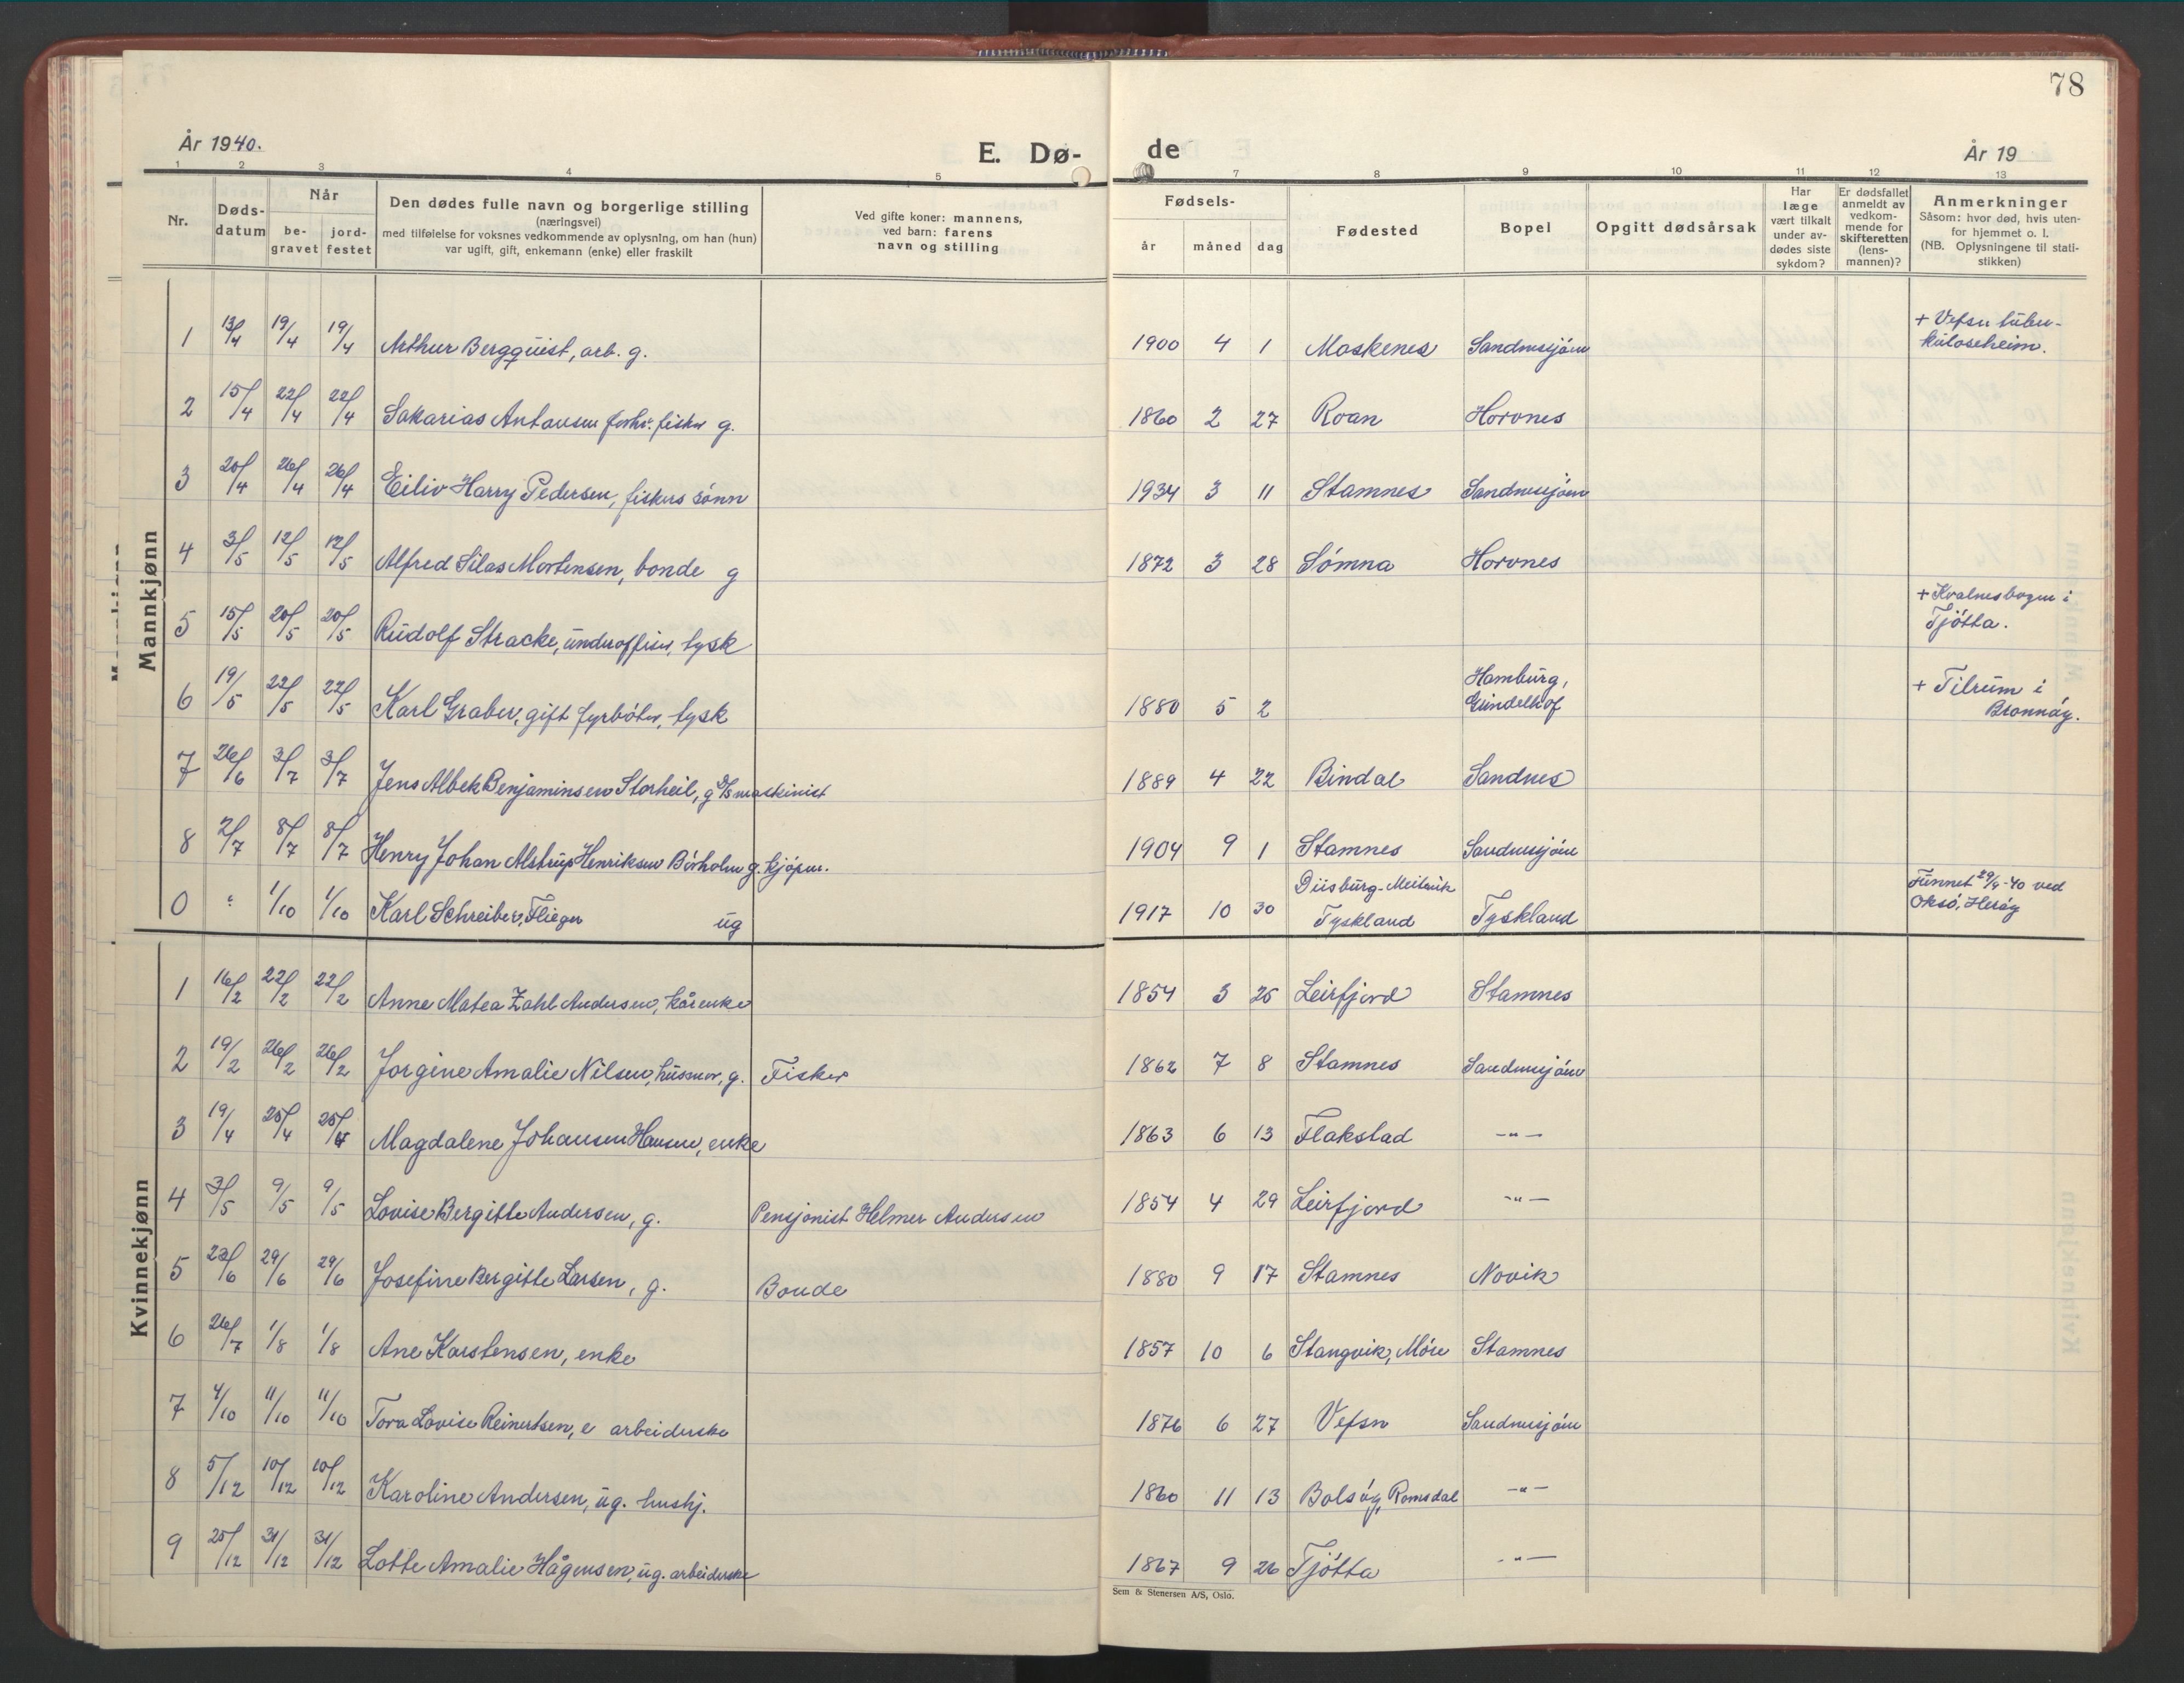 78
År 1940. E. Dø- de År 19
1 2 3 4 5 7 8 9 10 11 12 13
Nr. Døds-datum Når be-gravet jord-festet Den dødes fulle navn og borgerlige stilling (næringsvei) med tilføielse for voksnes vedkommende av oplysning, om han (hun) var ugift, gift, enkemann (enke) eller fraskilt Ved gifte koner: mannens, ved barn: farens navn og stilling Fødsels- år måned dag Fødested Bopel Opgitt dødsårsak Har læge vært tilkalt under av-dødes siste sykdom? Er dødsfallet anmeldt av vedkom-mende for skifteretten (lens-mannen)? Anmerkninger Såsom: hvor død, hvis uten-for hjemmet o. l. (NB. Oplysningene til stati-stikken)
Mannkjønn
1 13/4 19/4 19/4 Arthur Bergquist, arb. g. 1900 4 1 Moskenes Sandnessjøen + Vefsn tuber-kuloseheim.
2 15/4 22/4 22/4 Sakarias Antonsen forhv. fisker g. 1860 2 27 Roan Horvnes
3 20/4 26/4 26/4 Eiliv Harry Pedersen, fiskers sønn 1934 3 11 Stamnes Sandnessjøen
4 3/5 12/5 12/5 Alfred Silas Mortensen, bonde g 1872 3 28 Sømna Horvnes
5 15/5 20/5 20/5 Rudolf Stracke, underoffiser, tysk + Kvalnesbogen i Tjøtta.
6 19/5 22/5 22/5 Karl Graber, gift fyrbøter, tysk 1880 5 2 Hamburg, + Tilrum i Brønnøy.
7 26/6 3/7 3/7 Jens Albek Benjaminsen Storheil, g D/S maskinist 1889 4 22 Bindal Sandnes
8 2/7 8/7 8/7 Henry Johan Alstrup Henriksen Børholm g. kjøpm. 1904 9 1 Stamnes Sandnessjøen
0 1/10 1/10 Karl Schreiber, Flieger ug 1917 10 30 Tyskland Tyskland Funnet 29/9-40 ved Oksø, Herøy
Kvinnekjønn
1 16/2 22/2 22/2 Anne Matea Zahl Andersen, kårenke 1854 3 25 Leirfjord Stamnes
2 19/2 26/2 26/2 Jorgine Amalie Nilsen, husmor, g. Fisker 1862 7 8 Stamnes Sandnessjøen
3 19/4 25/4 25/4 Magdalene Johansen Hansen, enke 1863 6 13 Flakstad -"-
4 3/5 9/5 9/5 Lovise Bergitte Andersen, g. Pensjonist Helmer Andersen 1854 4 29 Leirfjord -"-
5 23/6 29/6 29/6 Josefine Bergitte Larsen, g. Bonde 1880 9 17 Stamnes Novik
6 26/7 1/8 1/8 Ane Karstensen, enke 1857 10 6 Stangvik, Møre Stamnes
7 4/10 11/10 11/10 Tora Lovise Reinertsen, e arbeiderske 1876 6 27 Vefsn Sandnessjøen
8 5/12 10/12 10/12 Karoline Andersen, ug. hushj. 1860 11 13 Bolsøy, Romsdal -"-
9 25/12 31/12 31/12 Lotte Amalie Hågensen, ug. arbeiderske 1867 9 26 Tjøtta -"-
Sem & Stenersen A/S, Oslo.